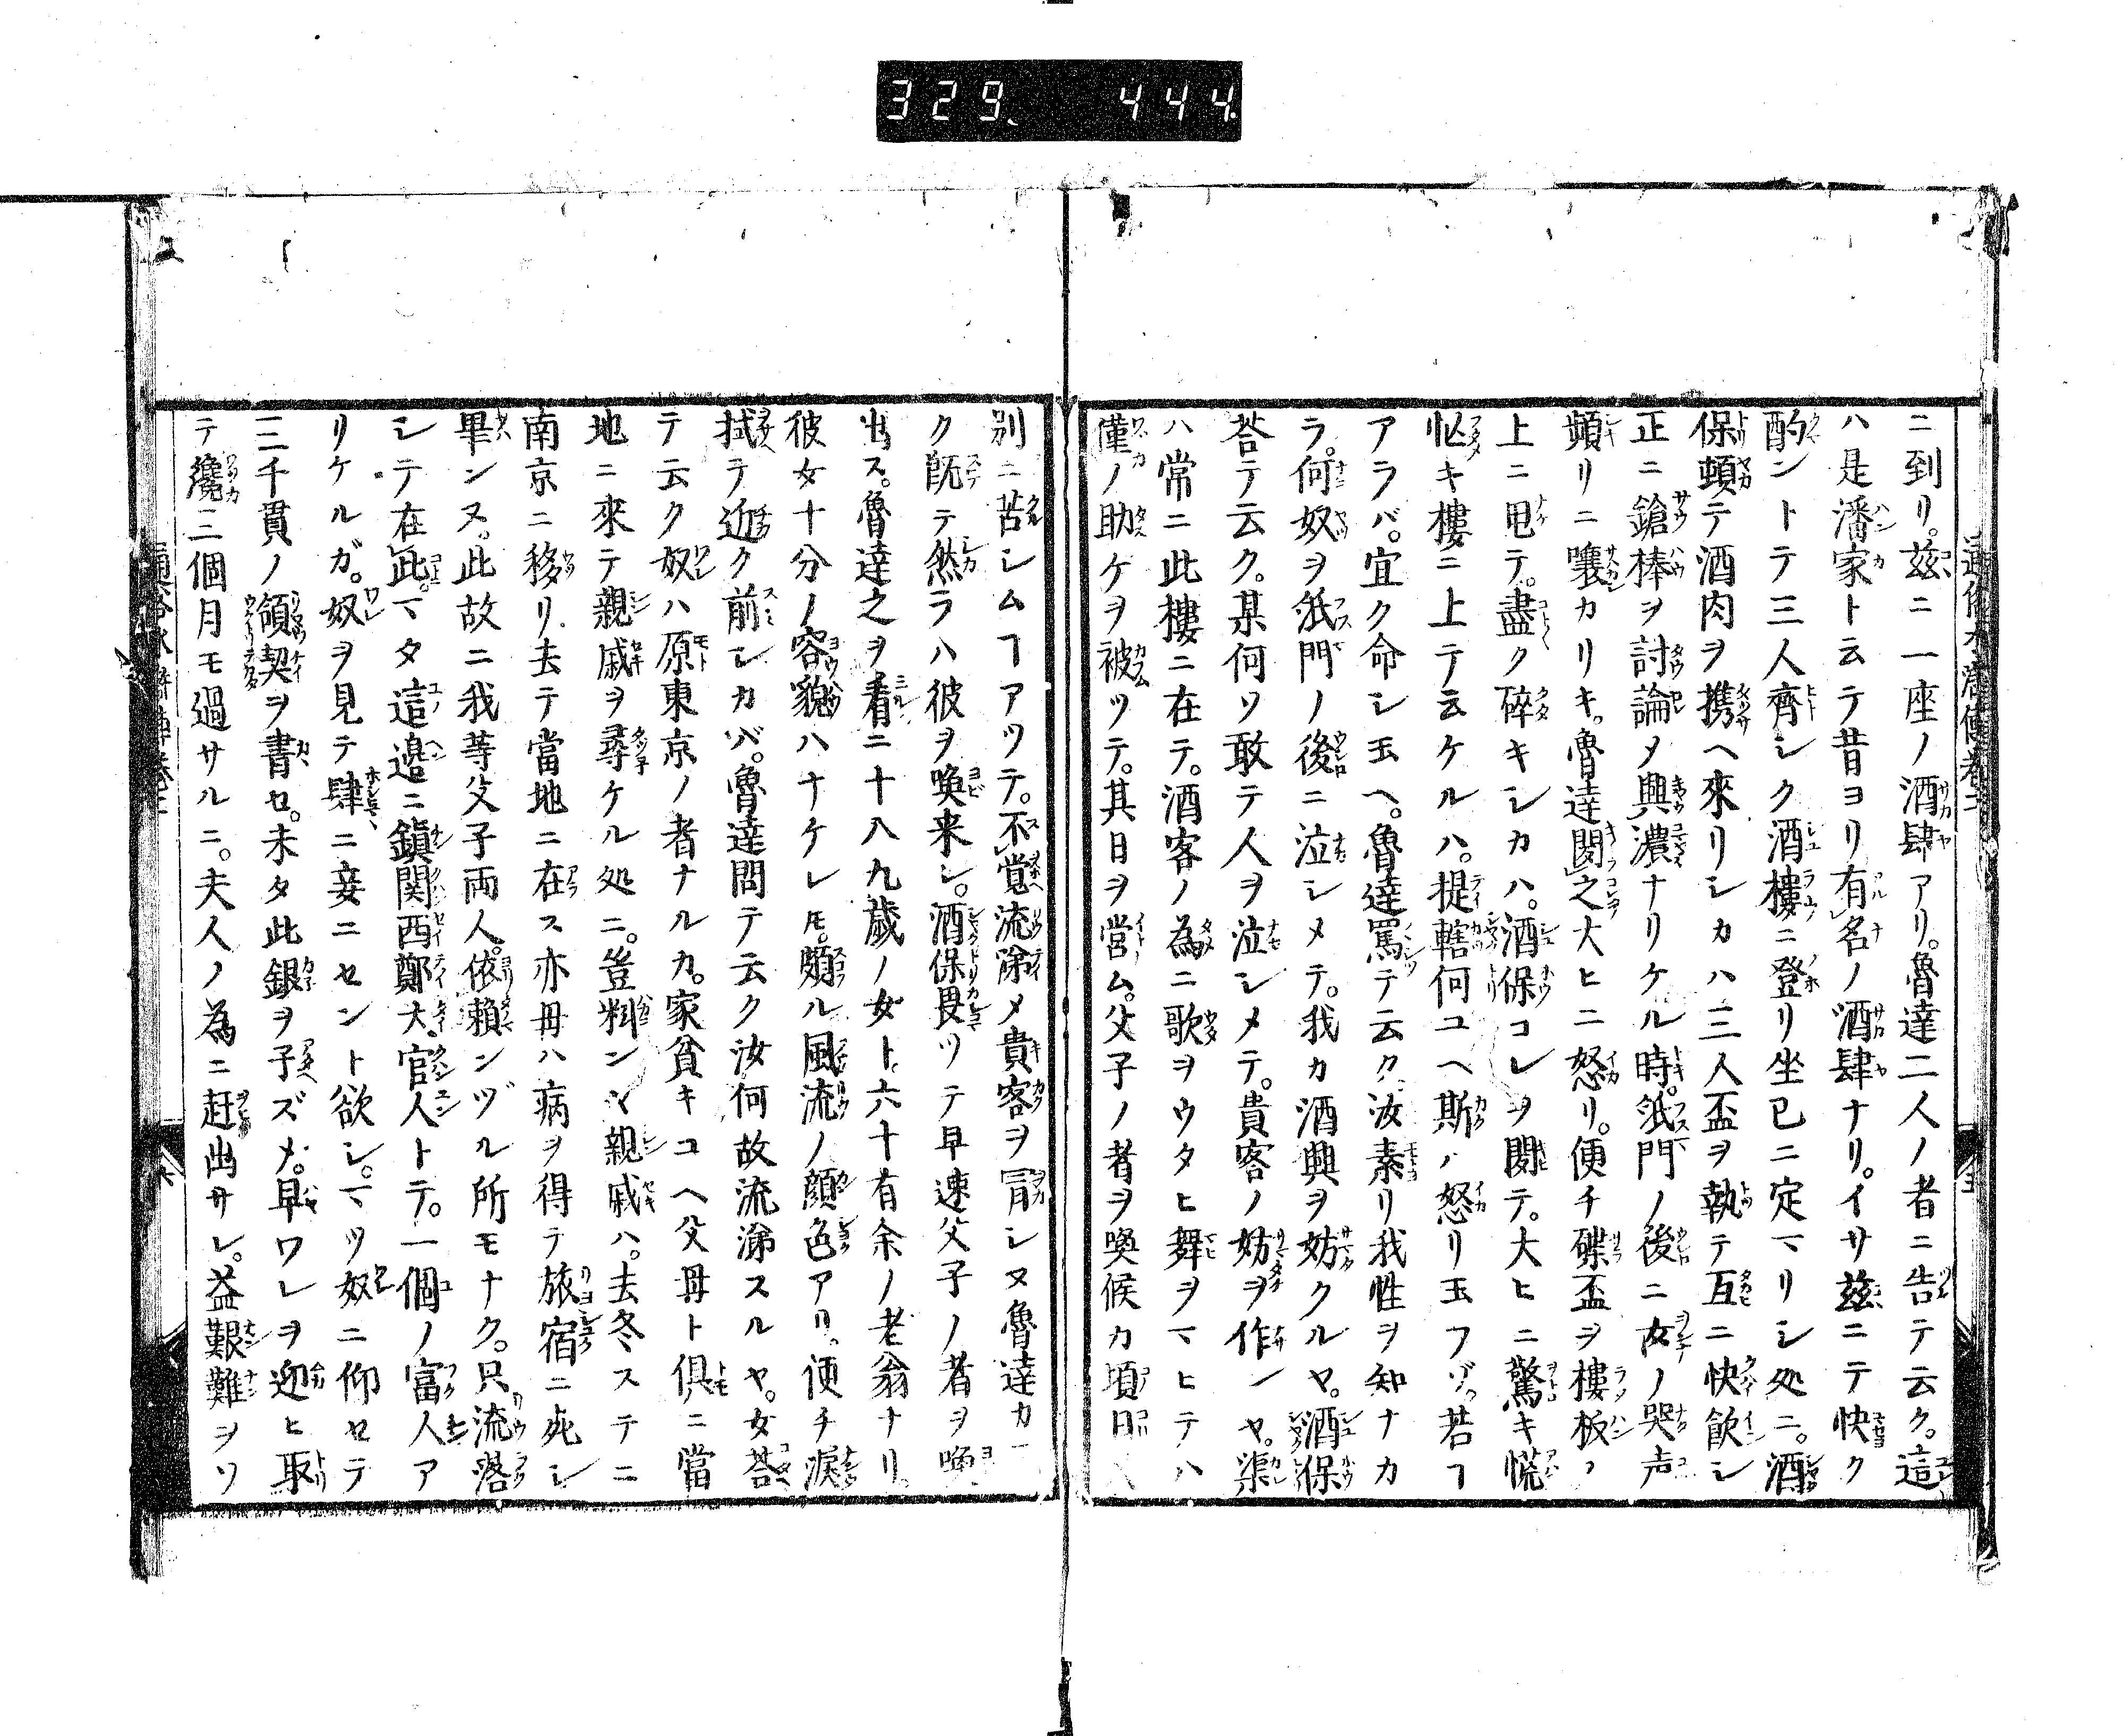 329. 444.
ニ到リ。茲ニ一座ノ酒肆アリ。魯達二人ノ者ニ告テ云ク。這
ハ是潘家ト云テ昔ヨリ有名ノ酒肆ナリ。イサ茲ニテ快ク
酌ントテ三人齊シク酒樓ニ登リ坐已ニ定マリシ処ニ。酒
保頓テ酒肉ヲ携ヘ來リシカハ三人盃ヲ執テ互ニ快飲シ
正ニ鎗棒ヲ討論メ興濃ナリケル時。帋門ノ後ニ女ノ哭声
頻リニ嚷カリキ。魯達聞之大ヒニ怒リ。便チ碟盃ヲ樓板ノ
上ニ甩テ。盡ク碎キシカハ。酒保コレヲ聞テ。大ヒニ驚キ慌
忙キ樓ニ上テ云ケルハ。提轄何ユヘ斯ハ怒リ玉フゾ。若ヿ
アラバ。宜ク命シ玉ヘ。魯達罵テ云ク汝素リ我性ヲ知ナカ
ラ。何奴ヲ帋門ノ後ニ泣シメテ。我カ酒興ヲ妨クルヤ。酒保
荅テ云ク。某何ソ敢テ人ヲ泣シメテ。貴客ノ妨ヲ作ンヤ。渠
ハ常ニ此樓ニ在テ。酒客ノ為ニ歌ヲウタヒ舞ヲマヒテハ
僅ノ助ケヲ被ツテ。其日ヲ営ム。父子ノ者ヲ喚候カ頃日
別ニ苦シムヿアツテ。不覚流涕メ貴客ヲ冐シヌ魯達カ
ク既テ然ラハ彼ヲ喚来シ。酒保畏ツテ早速父子ノ者ヲ喚
出ス。魯達之ヲ看ニ十八九歳ノ女ト。六十有余ノ老翁ナリ。
彼女十分ノ容貌ハナケレ𪜈。頗ル風流ノ顔色アリ。便チ涙
拭テ近ク前シカバ。魯達問テ云ク汝何故流涕スルヤ。女荅
テ云ク奴ハ原東京ノ者ナルカ。家貧キユヘ父母ト倶ニ當
地ニ來テ親戚ヲ尋ケル処ニ。豈料ンヤ親戚ハ。去冬ステニ
南京ニ移リ去テ當地ニ在ス亦毋ハ病ヲ得テ旅宿ニ死シ
畢ンヌ。此故ニ我等父子両人。依頼ンヅル所モナク。只流落
シテ在此。マタ這邉ニ鎭関西鄭大官人トテ。一個ノ富人ア
リケルガ。奴ヲ見テ肆ニ妾ニセント欲シ。マツ奴ニ仰セテ
三千貫ノ領契ヲ書セ。未タ此銀ヲ予ズメ。早ワレヲ迎ヒ取
テ纔三個月モ過サルニ。夫人ノ為ニ赶出サレ。益艱難ヲソ